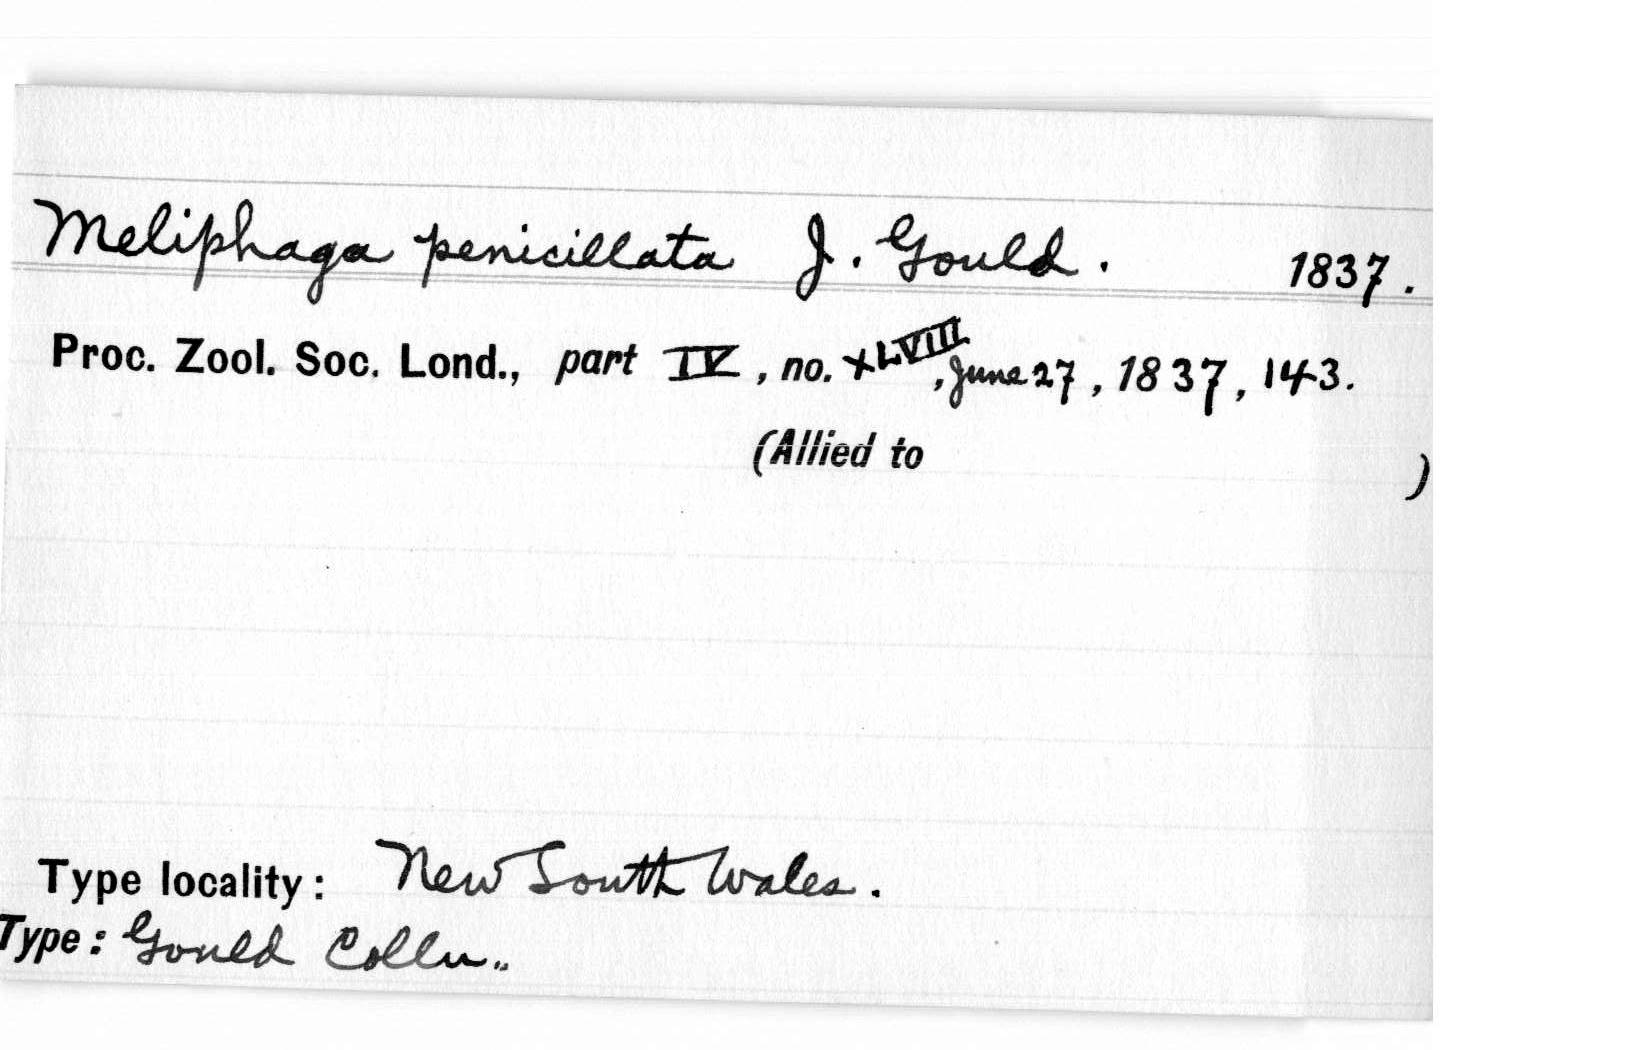 Meliphaga penicillata J. Gould. 1837.
Proc. Zool. Soc. Lond., part IV, no. XLVIII, June 27, 1837, 143.
(Allied to )
Type locality: New South Wales.
Type: Gould Colln..